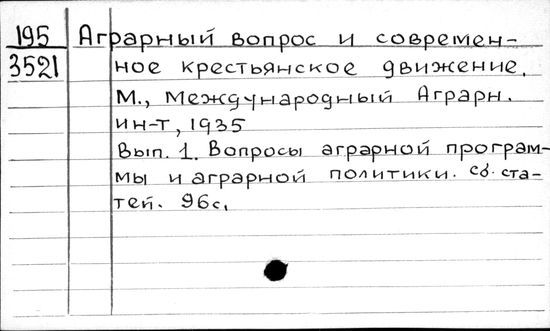 195 Аграрный вопрос и современ-
3521 ное крестьянское движение.
М., Международный Аграрн.
ин-т, 1935
Вып. 1. Вопросы аграрной програм-
мы и аграрной политики. Сб. ста-
тей. 96с.